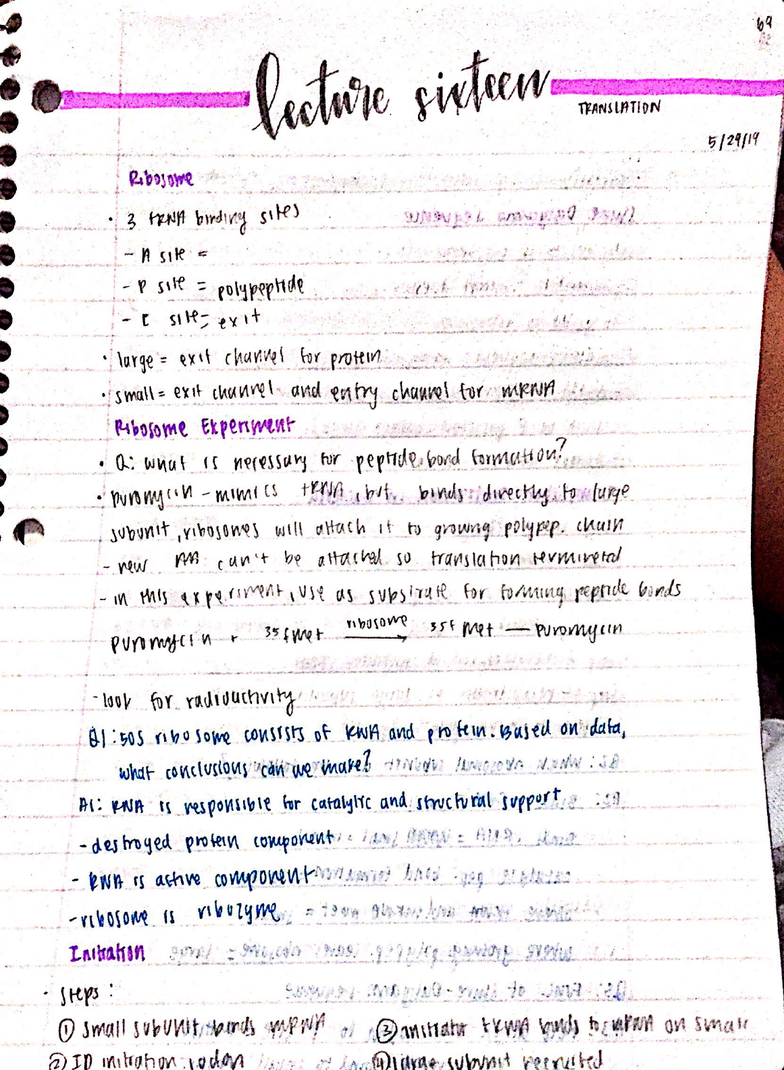 69
lecture sixteen
TRANSLATION
5/29/19
Ribosome
• 3 tRNA binding sites
- A site =
- P site = polypeptide
- E site = exit
• large = exit channel for protein
• small = exit channel and entry channel for mRNA
Ribosome Experiment
• Q: what is necessary for peptide bond formation?
• puromycin - mimics tRNA, but binds directly to large
subunit, ribosomes will attach it to growing polypep. chain
- new AA can't be attached so translation terminated
- in this experiment, use as substrate for forming peptide bonds
puromycin + 35fMet ribosome → 35fMet — puromycin
- look for radioactivity
Q1: 50S ribosome consists of RNA and protein. Based on data,
what conclusions can we make?
A1: RNA is responsible for catalytic and structural support
- destroyed protein component
- RNA is active component
- ribosome is ribozyme
Initiation
• Steps:
① small subunit binds mRNA ③ initiator tRNA binds to mRNA on small
② ID initiation codon ④ large subunit recruited